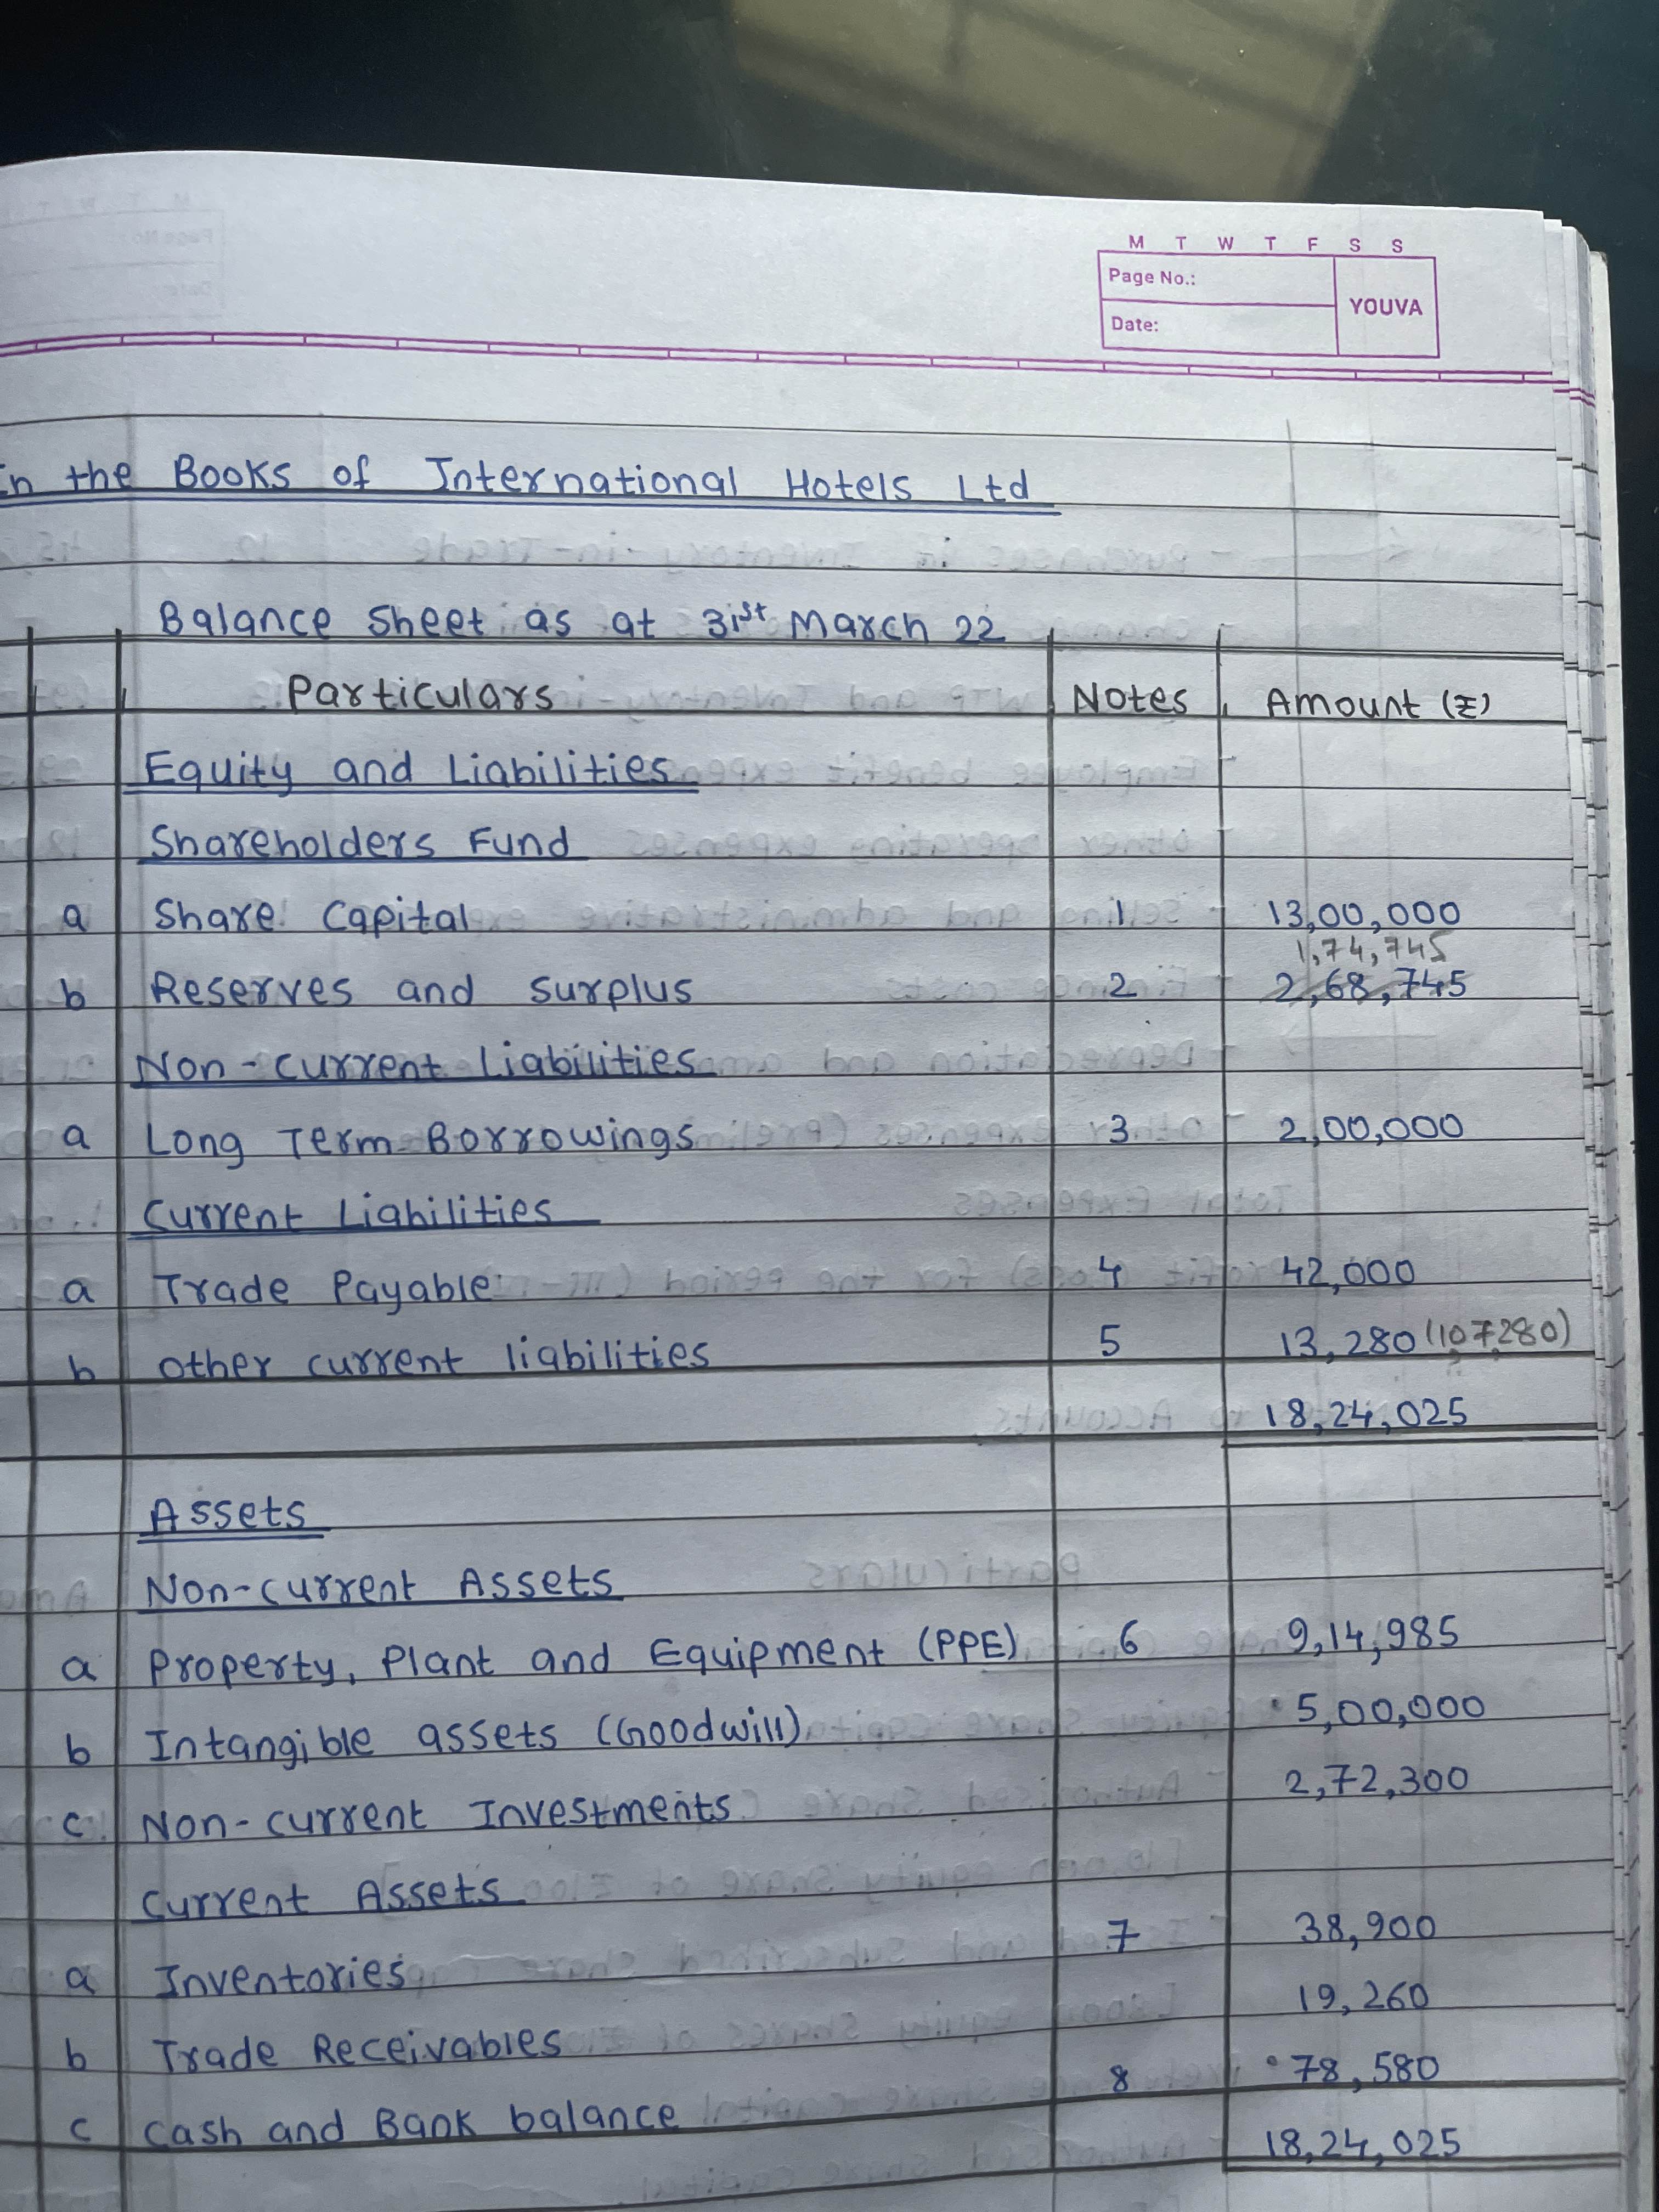 M T W T F S S
Page No.:
YOUVA
Date:
In the Books of International Hotels Ltd
Balance Sheet as at 31st March 22
Particulars Notes Amount (₹)
Equity and Liabilities
Shareholders Fund
a Share Capital 1 13,00,000
1,74,745
b Reserves and surplus 2 2,68,745
Non-current Liabilities
a Long Term Borrowings 3 2,00,000
Current Liabilities
a Trade Payable 4 42,000
b other current liabilities 5 13,280 (107280)
18,24,025
Assets
Non-current Assets
a Property, Plant and Equipment (PPE) 6 9,14,985
b Intangible assets (Goodwill) 5,00,000
c Non-current Investments 2,72,300
Current Assets
a Inventories 7 38,900
b Trade Receivables 19,260
c cash and Bank balance 8 78,580
18,24,025